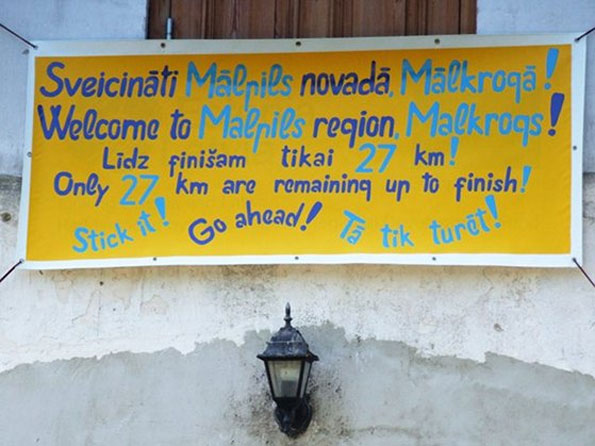 Sveicināti Mālpils novadā, Mālkrogā!
Welcome to Malpils region, Malkrogs!
Līdz finišam tikai 27 km!
Only 27 km are remaining up to finish!
Stick it! Go ahead! Tā tik turēt!